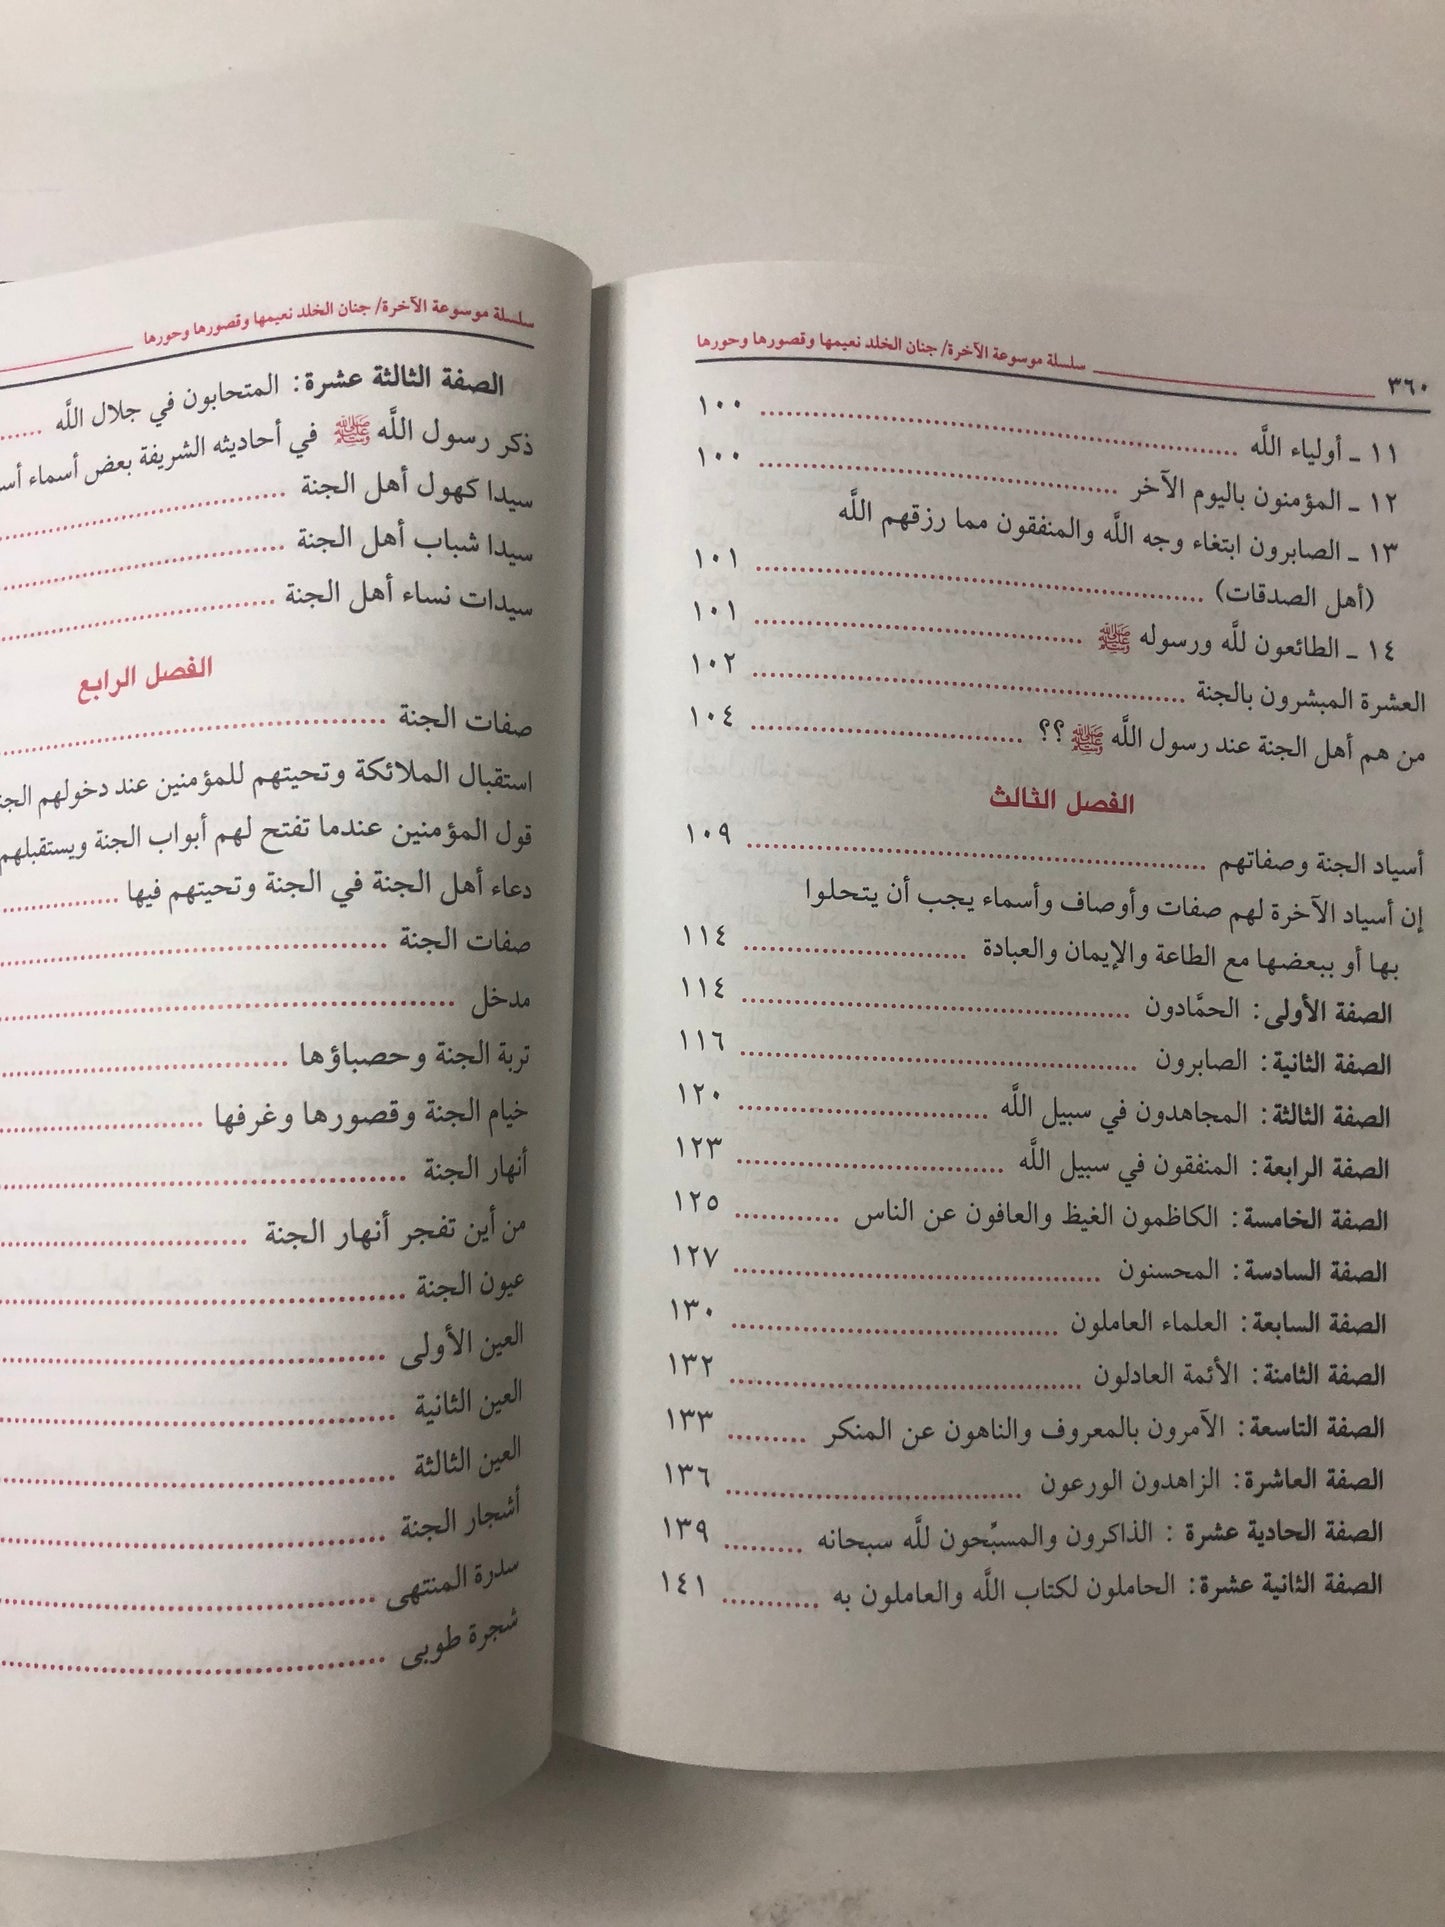 ٣٦٠ سلسلة موسوعة الآخرة/ جنان الخلد نعيمها وقصورها وحورها
١١ ـ أولياء اللَّه ١٠٠
١٢ ـ المؤمنون باليوم الآخر ١٠٠
١٣ ـ الصابرون ابتغاء وجه اللَّه والمنفقون مما رزقهم اللَّه
(أهل الصدقات) ١٠١
١٤ ـ الطائعون للَّه ورسوله ﷺ ١٠١
العشرة المبشرون بالجنة ١٠٢
من هم أهل الجنة عند رسول اللَّه ﷺ؟؟ ١٠٤
الفصل الثالث
أسياد الجنة وصفاتهم ١٠٩
إن أسياد الآخرة لهم صفات وأوصاف وأسماء يجب أن يتحلوا
بها أو ببعضها مع الطاعة والإيمان والعبادة ١١٤
الصفة الأولى: الحمَّادون ١١٤
الصفة الثانية: الصابرون ١١٦
الصفة الثالثة: المجاهدون في سبيل اللَّه ١٢٠
الصفة الرابعة: المنفقون في سبيل اللَّه ١٢٣
الصفة الخامسة: الكاظمون الغيظ والعافون عن الناس ١٢٥
الصفة السادسة: المحسنون ١٢٧
الصفة السابعة: العلماء العاملون ١٣٠
الصفة الثامنة: الأئمة العادلون ١٣٢
الصفة التاسعة: الآمرون بالمعروف والناهون عن المنكر ١٣٣
الصفة العاشرة: الزاهدون الورعون ١٣٦
الصفة الحادية عشرة : الذاكرون والمسبِّحون للَّه سبحانه ١٣٩
الصفة الثانية عشرة: الحاملون لكتاب اللَّه والعاملون به ١٤١
سلسلة موسوعة الآخرة/ جنان الخلد نعيمها وقصورها وحورها
الصفة الثالثة عشرة: المتحابون في جلال اللَّه
ذكر رسول اللَّه ﷺ في أحاديثه الشريفة بعض أسماء
سيدا كهول أهل الجنة
سيدا شباب أهل الجنة
سيدات نساء أهل الجنة
الفصل الرابع
صفات الجنة
استقبال الملائكة وتحيتهم للمؤمنين عند دخولهم
قول المؤمنين عندما تفتح لهم أبواب الجنة ويستقبلهم
دعاء أهل الجنة في الجنة وتحيتهم فيها
صفات الجنة
مدخل
تربة الجنة وحصباؤها
خيام الجنة وقصورها وغرفها
أنهار الجنة
من أين تفجر أنهار الجنة
عيون الجنة
العين الأولى
العين الثانية
العين الثالثة
أشجار الجنة
سدرة المنتهى
شجرة طوبى